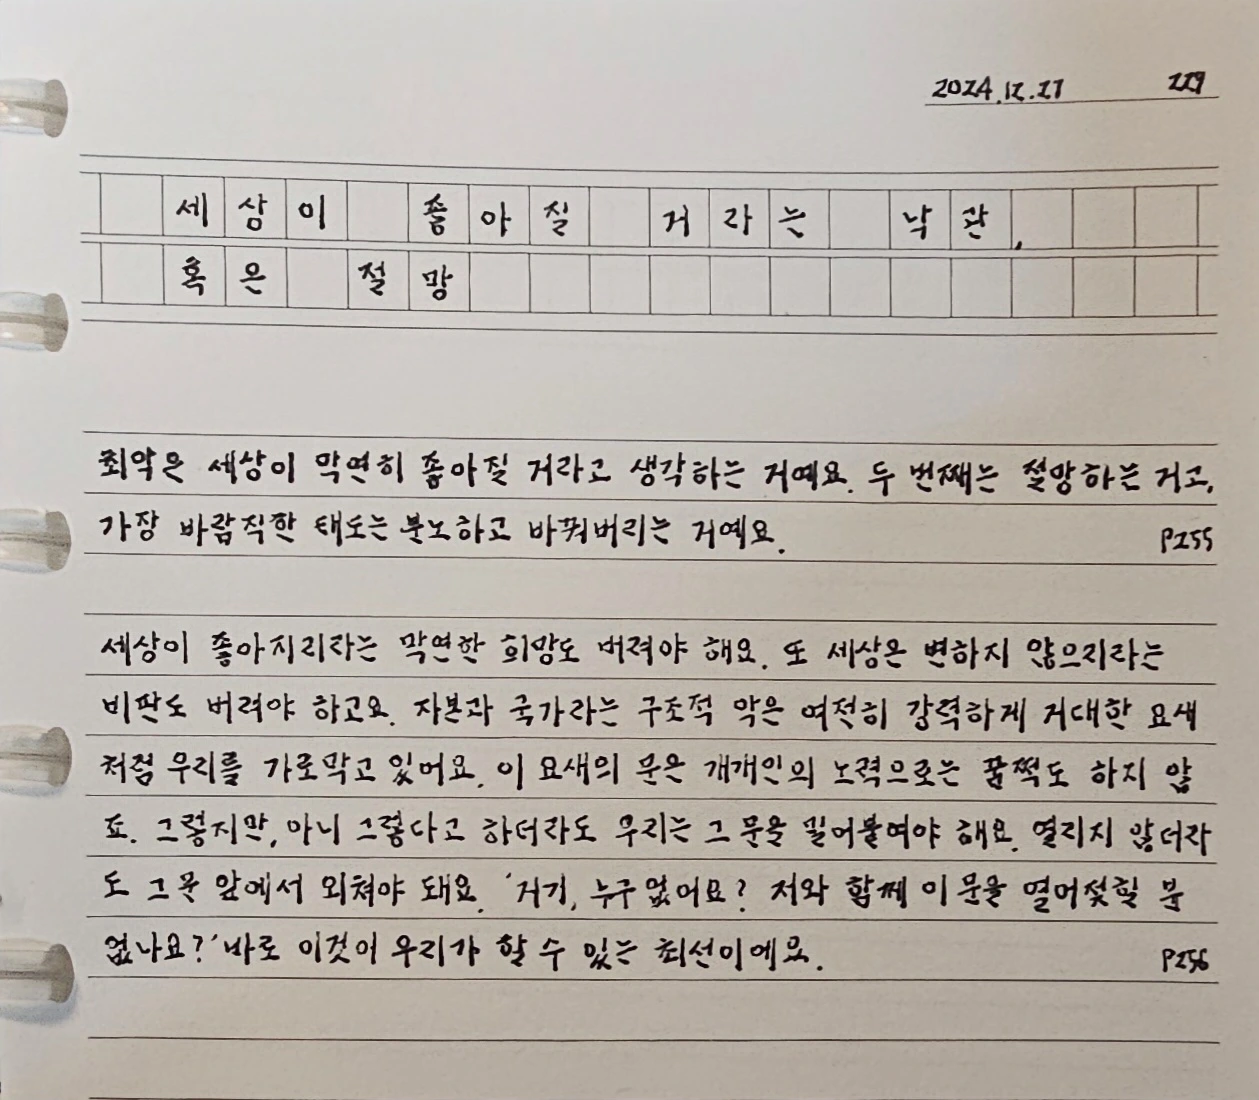 2024.12.27 229
세상이 좋아질 거라는 낙관,
혹은 절망
최악은 세상이 막연히 좋아질 거라고 생각하는 거예요. 두 번째는 절망하는 거고,
가장 바람직한 태도는 분노하고 바꿔버리는 거예요. P255
세상이 좋아지리라는 막연한 희망도 버려야 해요. 또 세상은 변하지 않으리라는
비판도 버려야 하고요. 자본과 국가라는 구조적 악은 여전히 강력하게 거대한 요새
처럼 우리를 가로막고 있어요. 이 요새의 문은 개개인의 노력으로는 꿈쩍도 하지 않
죠. 그렇지만, 아니 그렇다고 하더라도 우리는 그 문을 밀어붙여야 해요. 열리지 않더라
도 그 문 앞에서 외쳐야 돼요. '거기, 누구 없어요? 저와 함께 이 문을 열어젖힐 분
없나요?' 바로 이것이 우리가 할 수 있는 최선이에요. P256